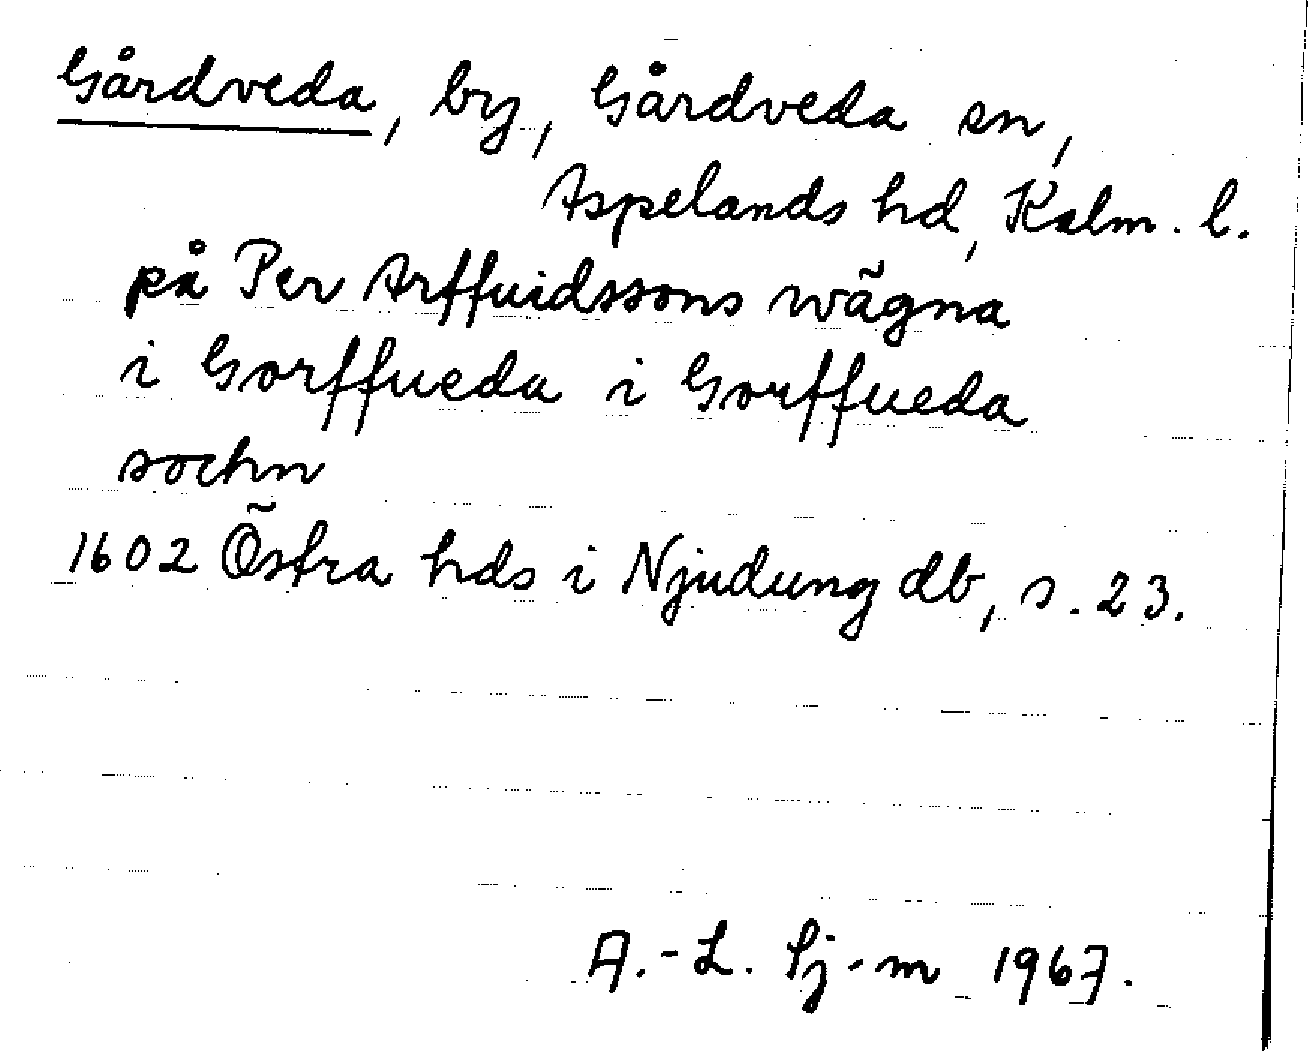 Gårdveda, by, Gårdveda sn,
Aspelands hd, Kalm. l.
på Per Arffuidssons wãgna
i Gorffueda i Gorffueda
sochn
1602 Õstra hds i Njudung db, s. 23.
A.-L. Sj-m 1967.